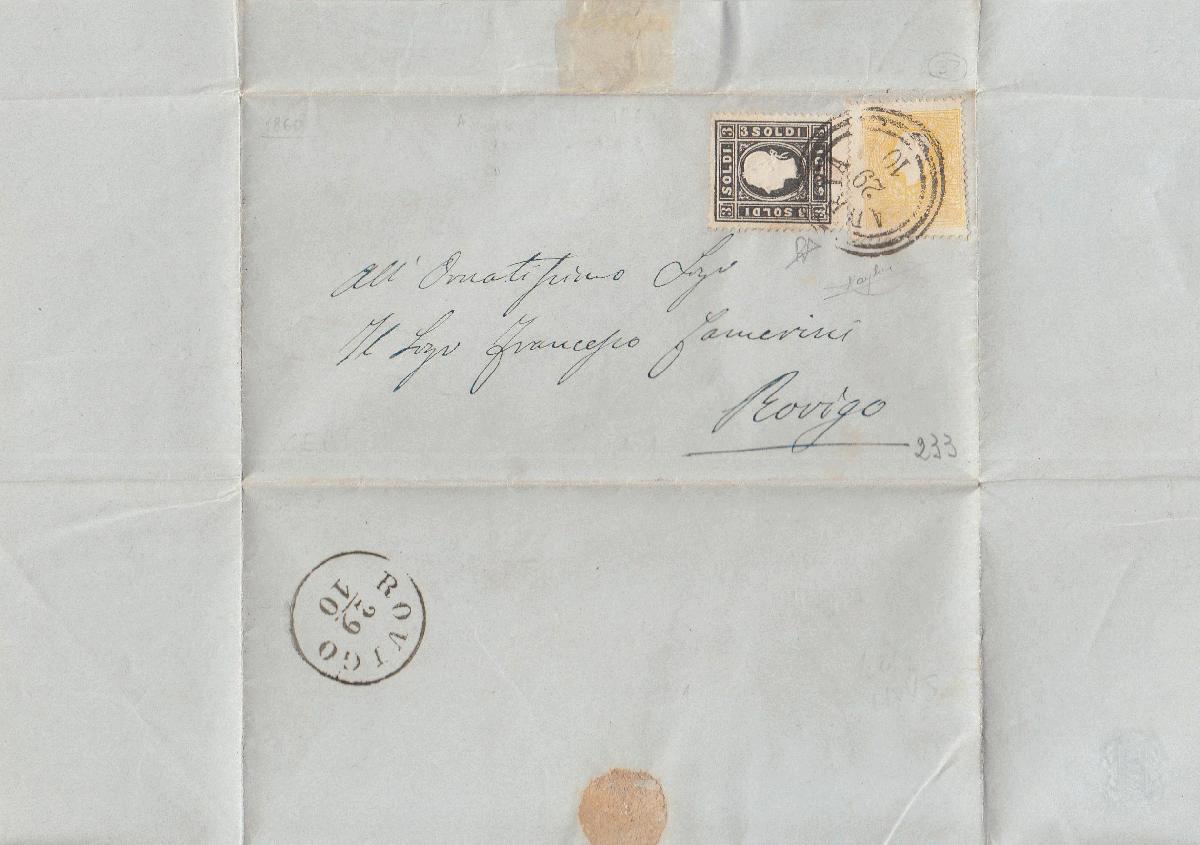 1860
3 SOLDI 3
SOLDI
SOLDI
3 SOLDI 3
ADRIA
29
10
All' Ornatissimo Sigr
Il Sigr Francesco Camerini
Rovigo
233
ROVIGO
29
10